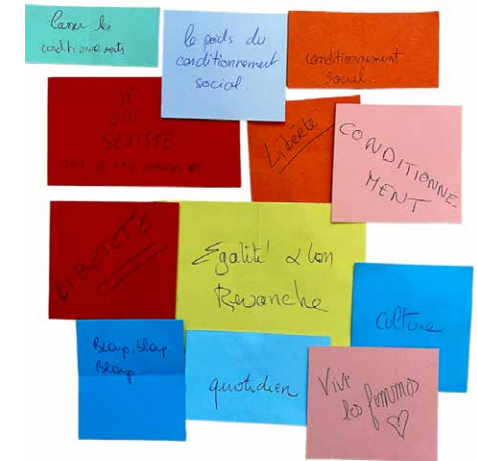 Casser les
conditionnements
le poids du
conditionnement
social.
conditionnement
Social.
JE
SUIS
SEXISTE
Liberté
CONDITIONNE-
MENT
LIBERTÉ
Egalité
Revanche
Culture
Blaup, blaup
Blaup
quotidien
Vive
les femmes